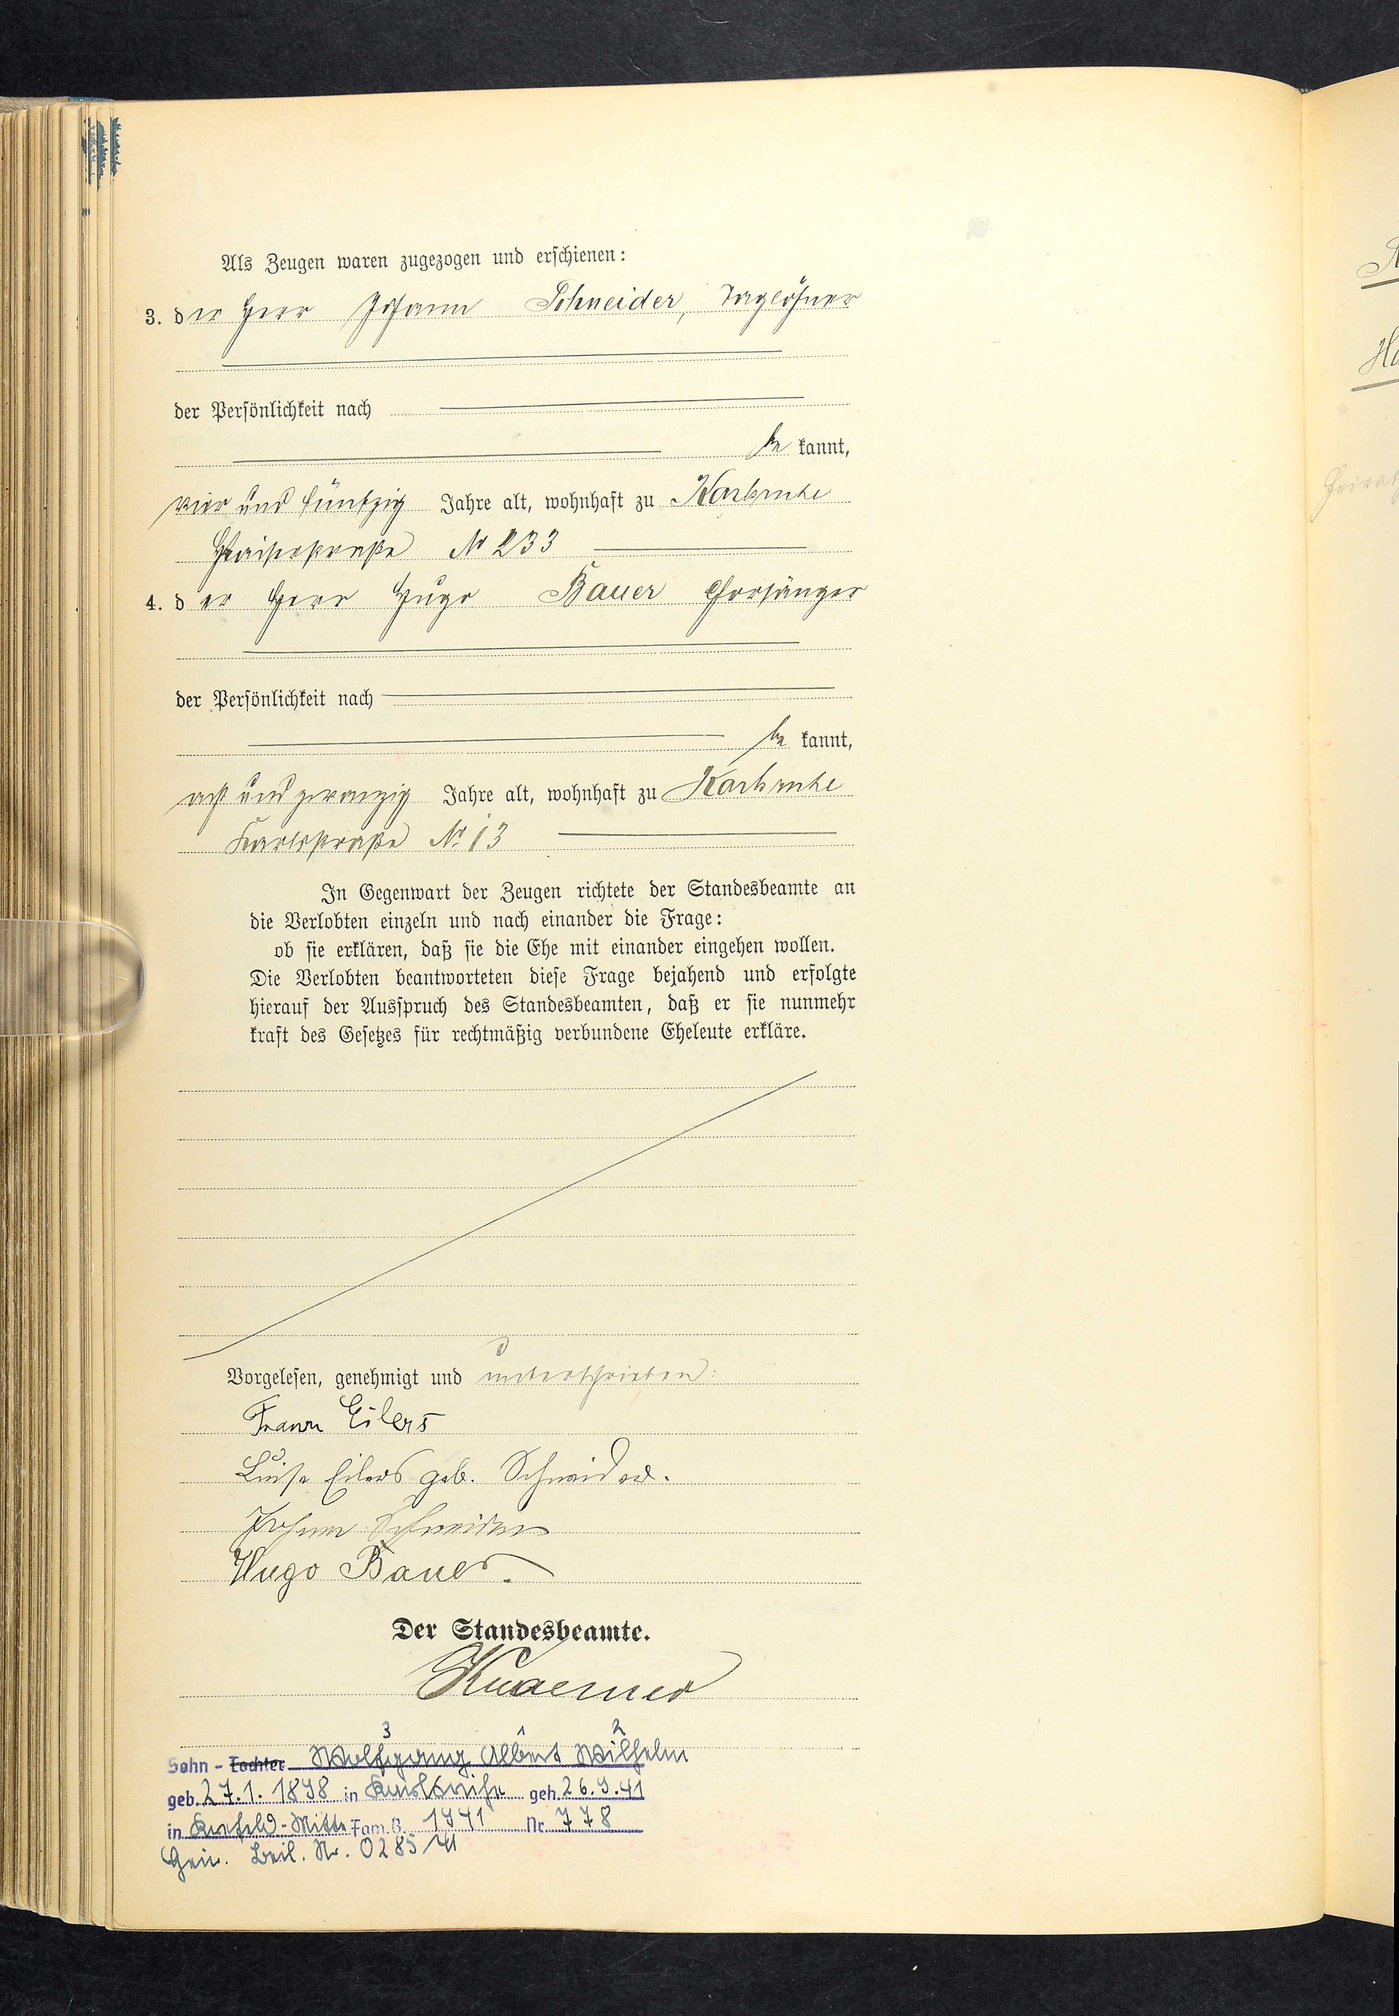 Als Zeugen waren zugezogen und erschienen:
3. der Herr Johann Schneider, Taglöhner
der Persönlichkeit nach
be kannt,
vier und fünfzig Jahre alt, wohnhaft zu Karlsruhe
Kaiserstraße № 233
4. der Herr Hugo Bauer Chorsänger
der Persönlichkeit nach
be kannt,
acht und zwanzig Jahre alt, wohnhaft zu Karlsruhe
Karlstraße № 13
In Gegenwart der Zeugen richtete der Standesbeamte an
die Verlobten einzeln und nach einander die Frage:
ob sie erklären, daß sie die Ehe mit einander eingehen wollen.
Die Verlobten beantworteten diese Frage bejahend und erfolgte
hierauf der Ausspruch des Standesbeamten, daß er sie nunmehr
kraft des Gesetzes für rechtmäßig verbundene Eheleute erkläre.
Vorgelesen, genehmigt und unterschrieben:
Eilers
Luise Eilers geb. Schneider.
Johann Schneider
Hugo Bauer.
Der Standesbeamte.
3 1 2
Sohn - Tochter Wolfgang Albert Wilhelm
geb. 27.1.1898 in Karlsruhe geh. 26.9.41
in Krefeld-Mitte Fam.B. 1941 Nr. 778
Heir. Beil. Nr. 0285/41